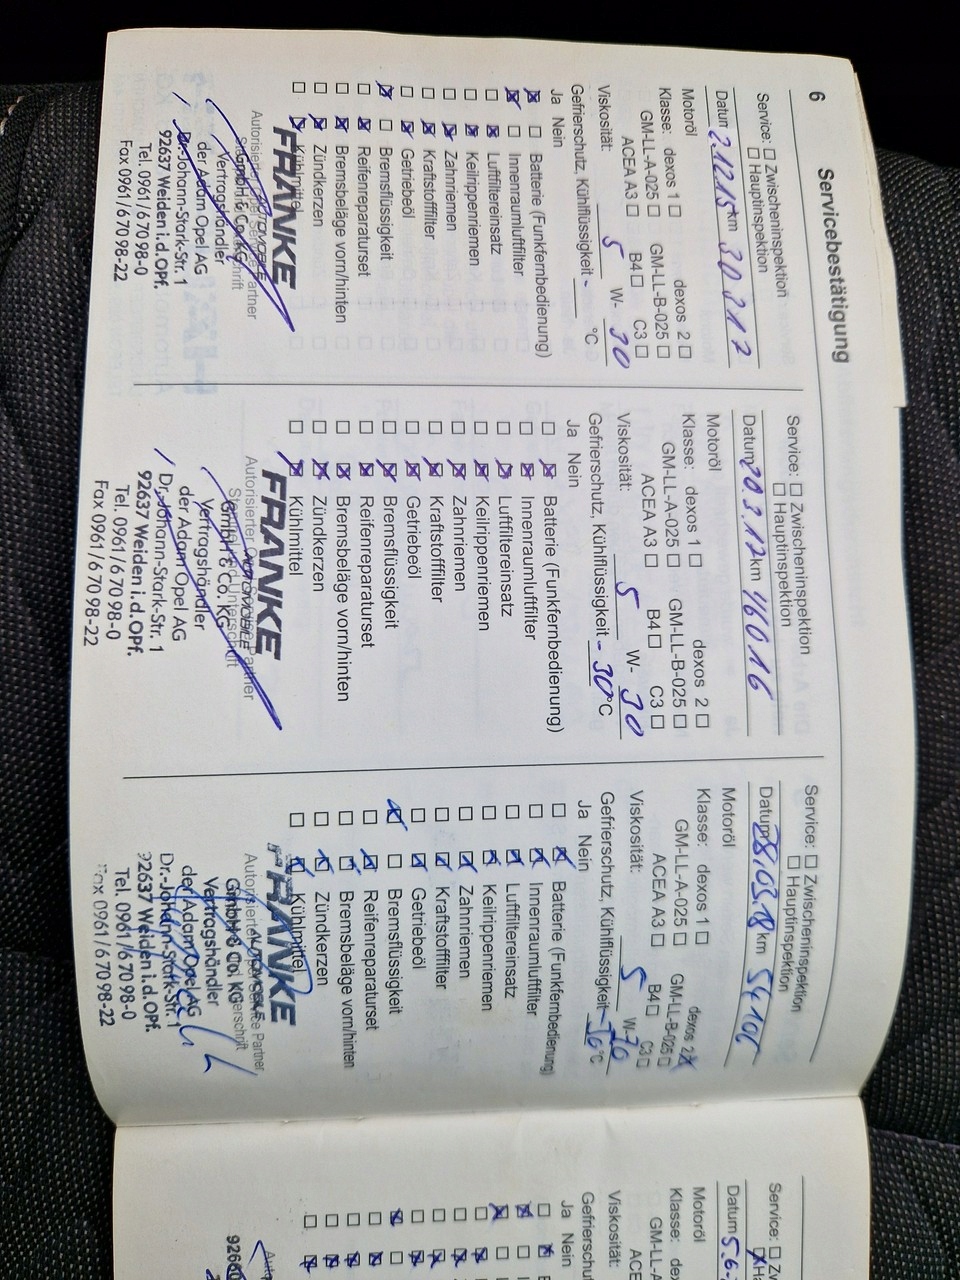 6
Servicebestätigung
Service: ☐ Zwischeninspektion
☐ Hauptinspektion
Datum 2.12.15 km 30 217
Motoröl
Klasse: dexos 1 ☐ dexos 2 ☐
GM-LL-A-025 ☐ GM-LL-B-025 ☐
ACEA A3 ☐ B4 ☐ C3 ☐
Viskosität: 5 W- 30
Gefrierschutz, Kühlflüssigkeit - °C
Ja Nein
☒ ☐ Batterie (Funkfernbedienung)
☒ ☐ Innenraumluftfilter
☐ ☒ Luftfiltereinsatz
☐ ☒ Keilrippenriemen
☐ ☒ Zahnriemen
☐ ☒ Kraftstofffilter
☐ ☒ Getriebeöl
☒ ☐ Bremsflüssigkeit
☐ ☒ Reifenreparaturset
☐ ☒ Bremsbeläge vorn/hinten
☐ ☒ Zündkerzen
☐ ☒ Kühlmittel
FRANKE
Autorisierter Partner
GmbH & Co. KG
Vertragshändler
der Adam Opel AG
Dr.-Johann-Stark-Str. 1
92637 Weiden i. d. OPf.
Tel. 0961/6 70 98-0
Fax 0961/6 70 98-22
Service: ☐ Zwischeninspektion
☐ Hauptinspektion
Datum 20.3.17 km 46016
Motoröl
Klasse: dexos 1 ☐ dexos 2 ☐
GM-LL-A-025 ☐ GM-LL-B-025 ☐
ACEA A3 ☐ B4 ☐ C3 ☐
Viskosität: 5 W- 30
Gefrierschutz, Kühlflüssigkeit - 30 °C
Ja Nein
☐ ☒ Batterie (Funkfernbedienung)
☐ ☒ Innenraumluftfilter
☐ ☒ Luftfiltereinsatz
☐ ☒ Keilrippenriemen
☐ ☒ Zahnriemen
☐ ☒ Kraftstofffilter
☐ ☒ Getriebeöl
☐ ☒ Bremsflüssigkeit
☐ ☒ Reifenreparaturset
☐ ☒ Bremsbeläge vorn/hinten
☐ ☒ Zündkerzen
☐ ☒ Kühlmittel
FRANKE
Autorisierter Opel Service Partner
GmbH & Co. KG
Stempel und Unterschrift
Vertragshändler
der Adam Opel AG
Dr.-Johann-Stark-Str. 1
92637 Weiden i. d. OPf.
Tel. 0961/6 70 98-0
Fax 0961/6 70 98-22
Service: ☐ Zwischeninspektion
☐ Hauptinspektion
Datum 28.03.18 km
Motoröl
Klasse: dexos 1 ☐ dexos 2 ☒
GM-LL-A-025 ☐ GM-LL-B-025 ☐
ACEA A3 ☐ B4 ☐ C3 ☐
Viskosität: 5 W- 30
Gefrierschutz, Kühlflüssigkeit °C
Ja Nein
☐ ☒ Batterie (Funkfernbedienung)
☐ ☒ Innenraumluftfilter
☐ ☒ Luftfiltereinsatz
☐ ☒ Keilrippenriemen
☐ ☒ Zahnriemen
☐ ☒ Kraftstofffilter
☐ ☒ Getriebeöl
☒ ☐ Bremsflüssigkeit
☐ ☒ Reifenreparaturset
☐ ☒ Bremsbeläge vorn/hinten
☐ ☒ Zündkerzen
☐ ☒ Kühlmittel
FRANKE
Autorisierter Opel Service Partner
GmbH & Co. KG
Vertragshändler
der Adam Opel AG
Dr.-Johann-Stark-Str. 1
92637 Weiden i. d. OPf.
Tel. 0961/6 70 98-0
Fax 0961/6 70 98-22
Service: ☐ Zw
☒ Ha
Datum 5.6.
Motoröl
Klasse: dex
GM-LL-A
ACE
Viskosität:
Gefrierschut
Ja Nein